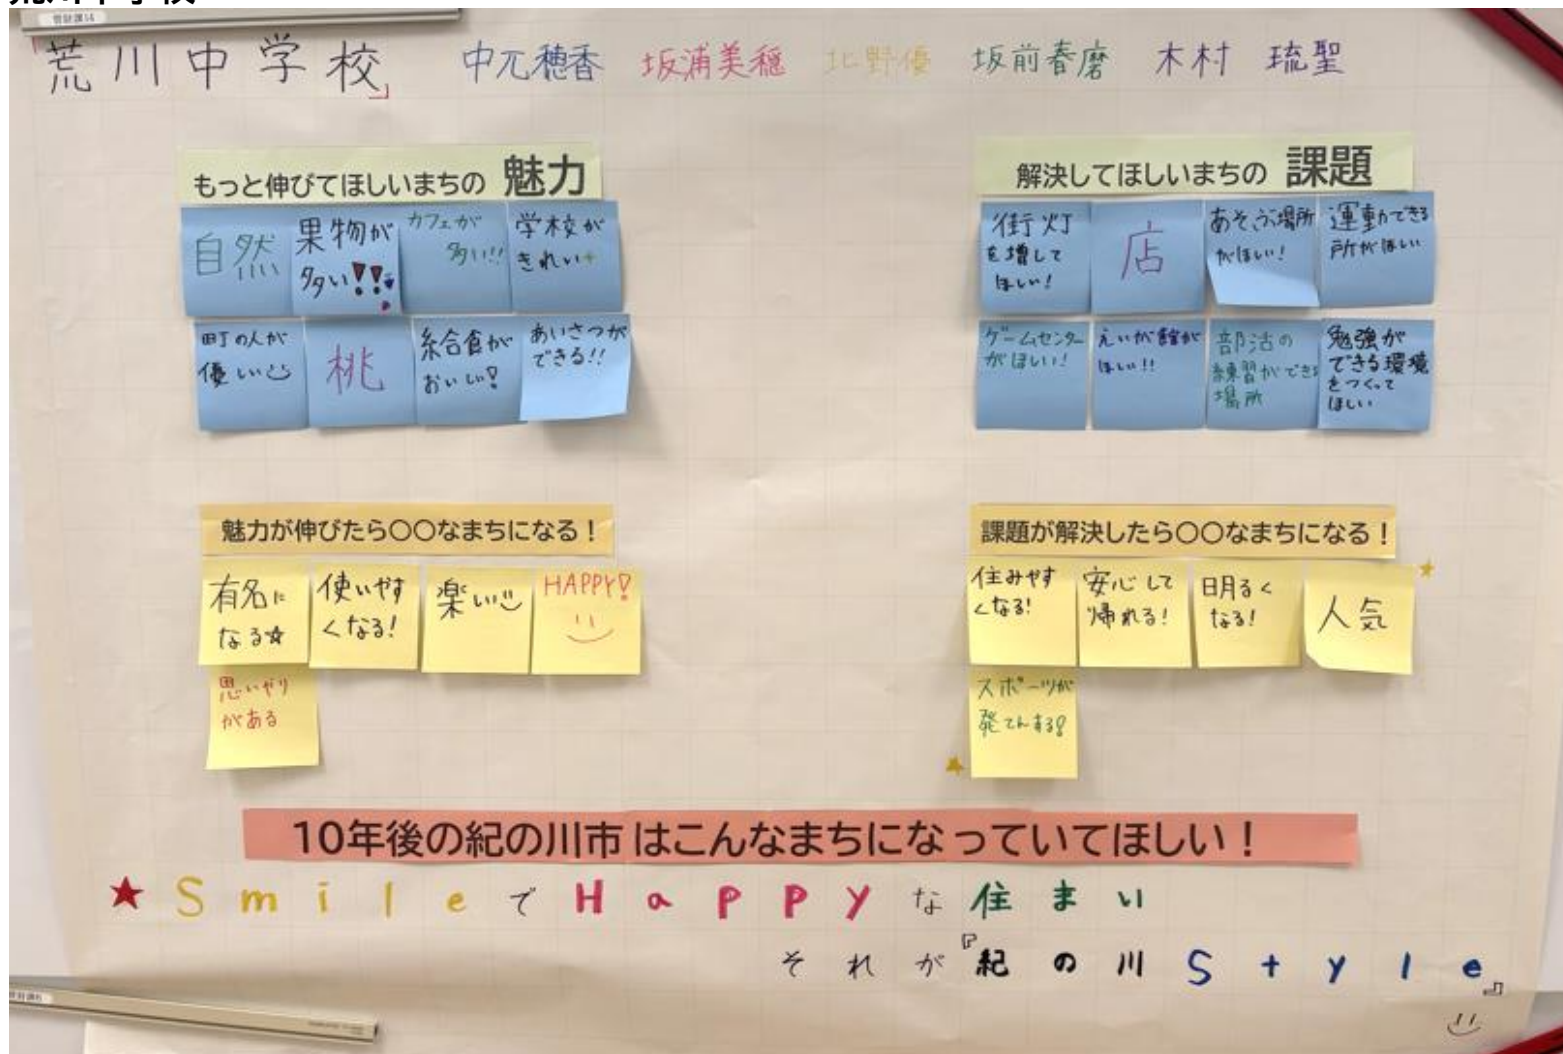 「荒川中学校」 中元穂香 坂浦美穏 北野優 坂前春磨 木村 琉聖
もっと伸びてほしいまちの 魅力
自然
果物が
多い!!
カフェが
多い!!
学校が
きれい+
町の人が
優しい
桃
給合食が
おいしい!
あいさつが
できる!!
解決してほしいまちの 課題
街灯
を増して
ほしい!
店
あそぶ場所
がほしい!
運動できる
所がほしい
ゲームセンター
がほしい!
えいが館が
ほしい!!
部活の
練習ができる
場所
勉強が
できる環境
をつくって
ほしい
魅力が伸びたら〇〇なまちになる!
有名に
なる☆
使いやす
くなる!
楽しい
HAPPY!
思いやり
がある
課題が解決したら〇〇なまちになる!
住みやす
くなる!
安心して
帰れる!
明るく
なる!
人気
スポーツが
発てんする!
10年後の紀の川市はこんなまちになっていてほしい!
★SmileでHappyな住まい
それが『紀の川Style』